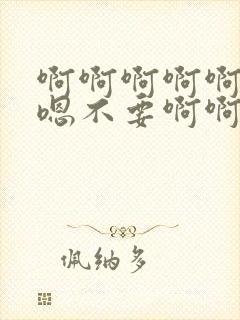 啊啊啊啊啊
嗯不要啊啊
佩纳多